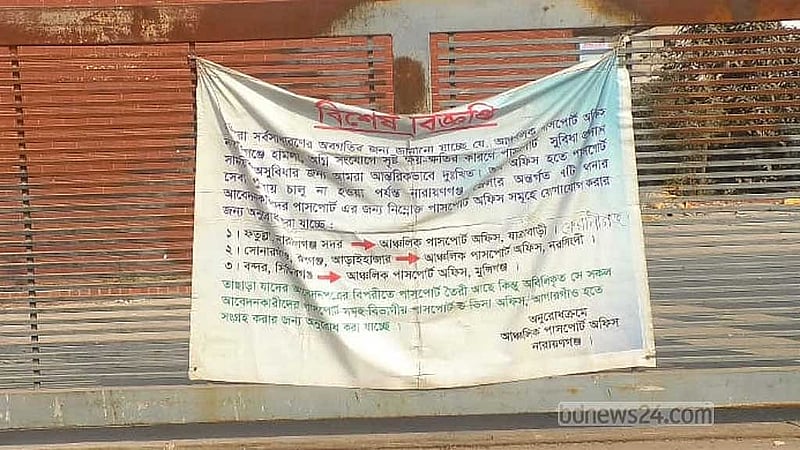 বিশেষ বিজ্ঞপ্তি
সর্বসাধারণের অবগতির জন্য জানানো যাচ্ছে যে, আঞ্চলিক পাসপোর্ট অফিস
হামলা, অগ্নি সংযোগে সৃষ্ট ক্ষয়-ক্ষতির কারণে পাসপোর্ট সুবিধা প্রদান
অসুবিধার জন্য আমরা আন্তরিকভাবে দুঃখিত। অফিস হতে পাসপোর্ট
সেবা চালু না হওয়া পর্যন্ত নারায়ণগঞ্জ জেলার অন্তর্গত ৭টি থানার
আবেদনকারীদের পাসপোর্ট এর জন্য নিম্নোক্ত পাসপোর্ট অফিস সমূহে যোগাযোগ করার
জন্য অনুরোধ করা যাচ্ছে :
১। ফতুল্লা, নারায়ণগঞ্জ সদর → আঞ্চলিক পাসপোর্ট অফিস, যাত্রাবাড়ী।
২। সোনারগাঁ, রূপগঞ্জ, আড়াইহাজার → আঞ্চলিক পাসপোর্ট অফিস, নরসিংদী।
৩। বন্দর, সিদ্ধিরগঞ্জ → আঞ্চলিক পাসপোর্ট অফিস, মুন্সিগঞ্জ।
তাছাড়া যাদের আবেদনপত্রের বিপরীতে পাসপোর্ট তৈরী আছে কিন্তু অবিলিকৃত সে সকল
আবেদনকারীদের পাসপোর্ট সমূহ বিভাগীয় পাসপোর্ট ও ভিসা অফিস, আগারগাঁও হতে
সংগ্রহ করার জন্য অনুরোধ করা যাচ্ছে।
অনুরোধক্রমে
আঞ্চলিক পাসপোর্ট অফিস
নারায়ণগঞ্জ।
bunews24.com